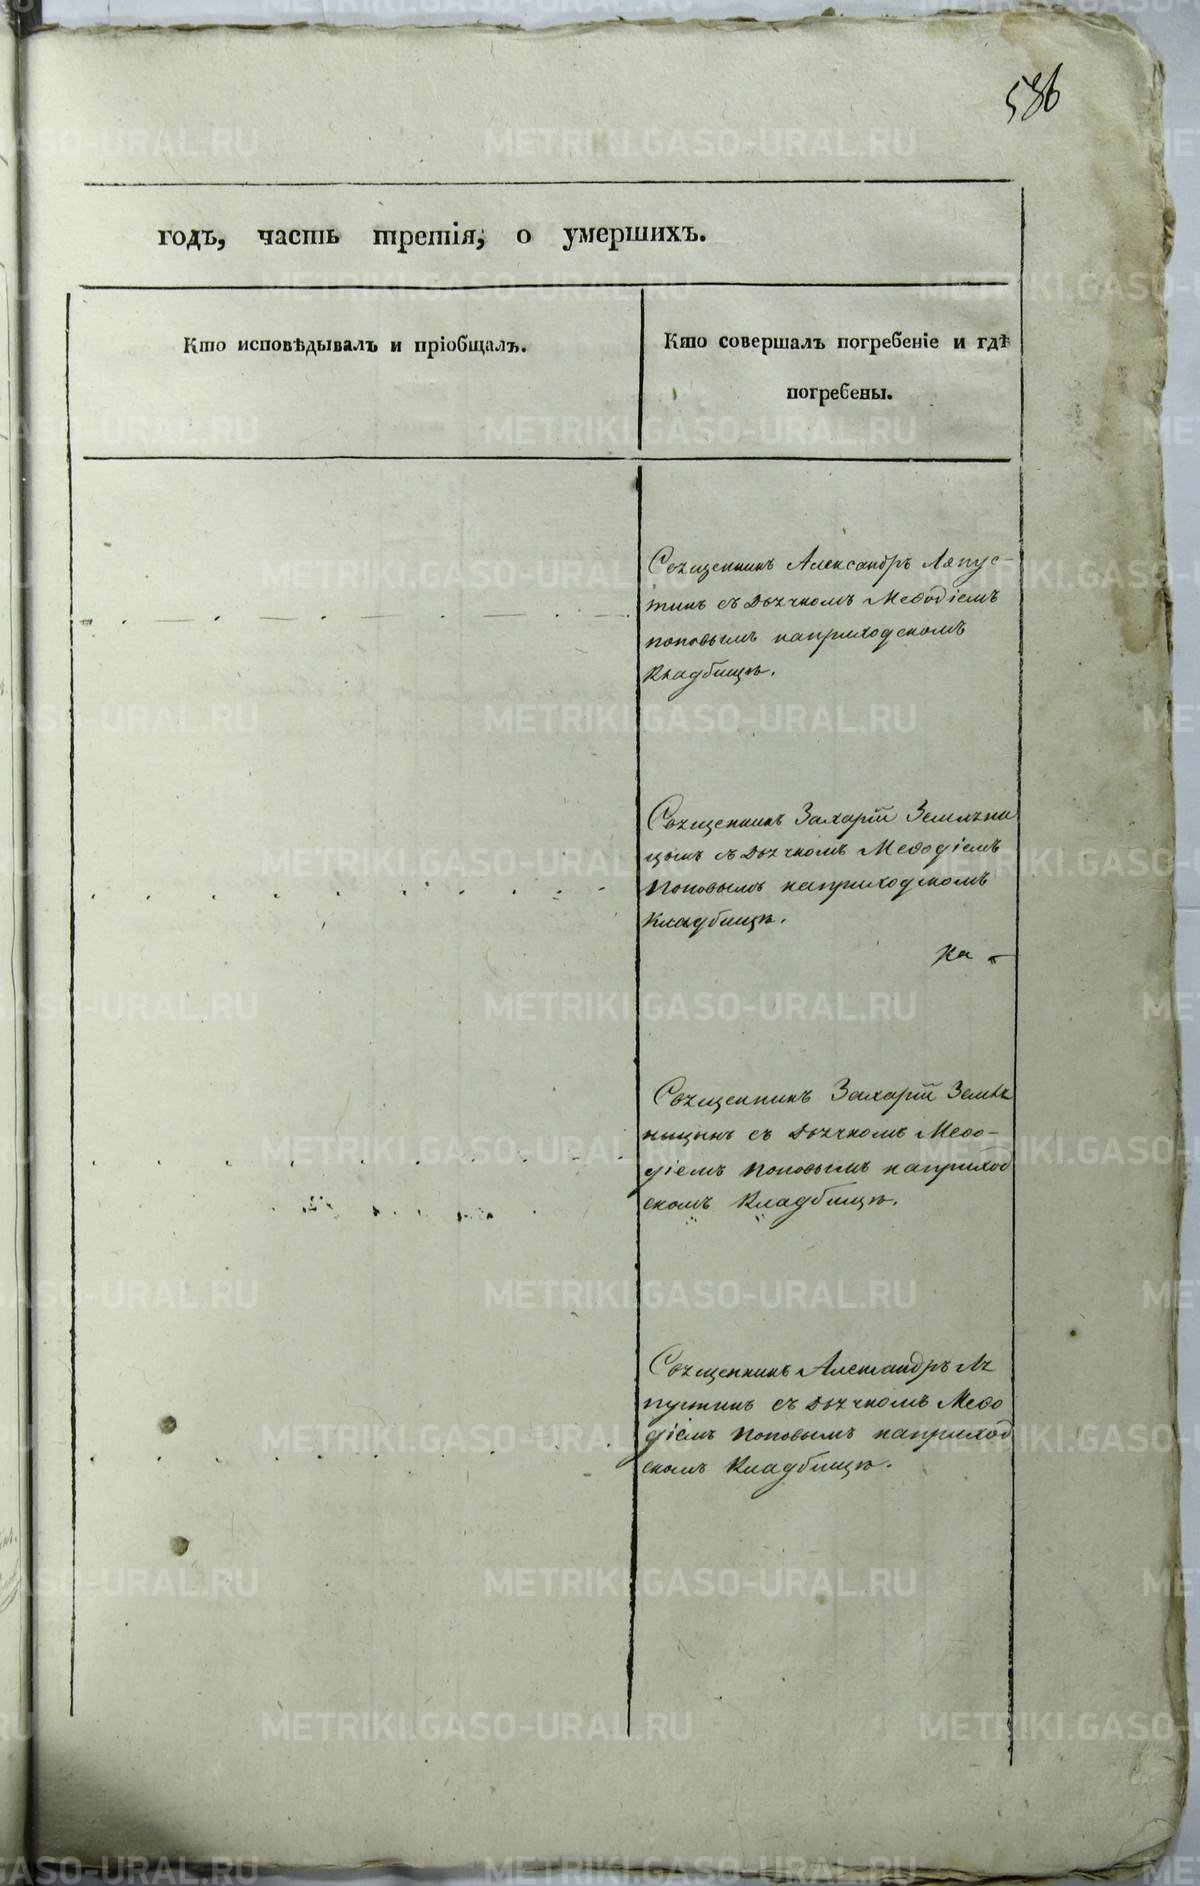 586
годъ, часть третія, о умершихъ.
Кто исповѣдывалъ и пріобщалъ.
Кто совершалъ погребеніе и гдѣ
погребены.
Священникъ Александръ Ляпус-
тинъ съ Дьячкомъ Меѳодіемъ
поповымъ наприходскомъ
Кладбищѣ.
Священникъ Захарій Земляни
цынъ съ Дьячкомъ Меѳодіемъ
Поповымъ наприходскомъ
Кладбищѣ.
На
Священникъ Захарій Земля
ницынъ съ Дьячкомъ Меѳо-
діемъ Поповымъ наприход
скомъ Кладбищѣ.
Священникъ Александръ Ля
пустинъ съ Дьячкомъ Меѳо
діемъ Поповымъ наприход
скомъ Кладбищѣ.
METRIKI.GASO-URAL.RU